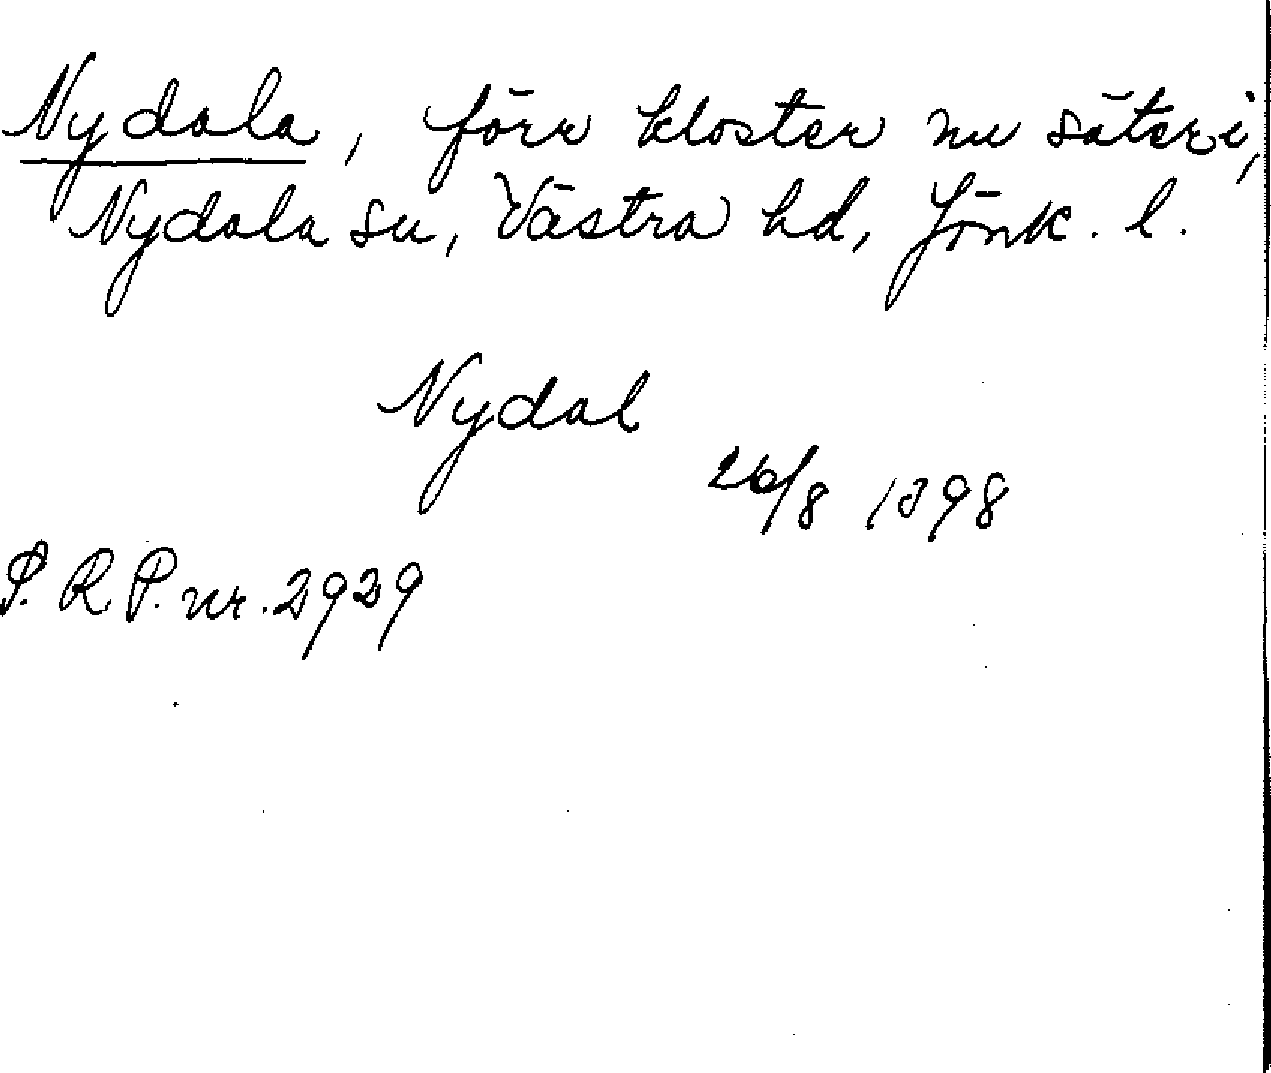 Nydala, förr kloster nu säteri,
Nydala su, Västra hd, Jönk. l.
Nydal
26/8 1398
S. R. P. nr. 2929